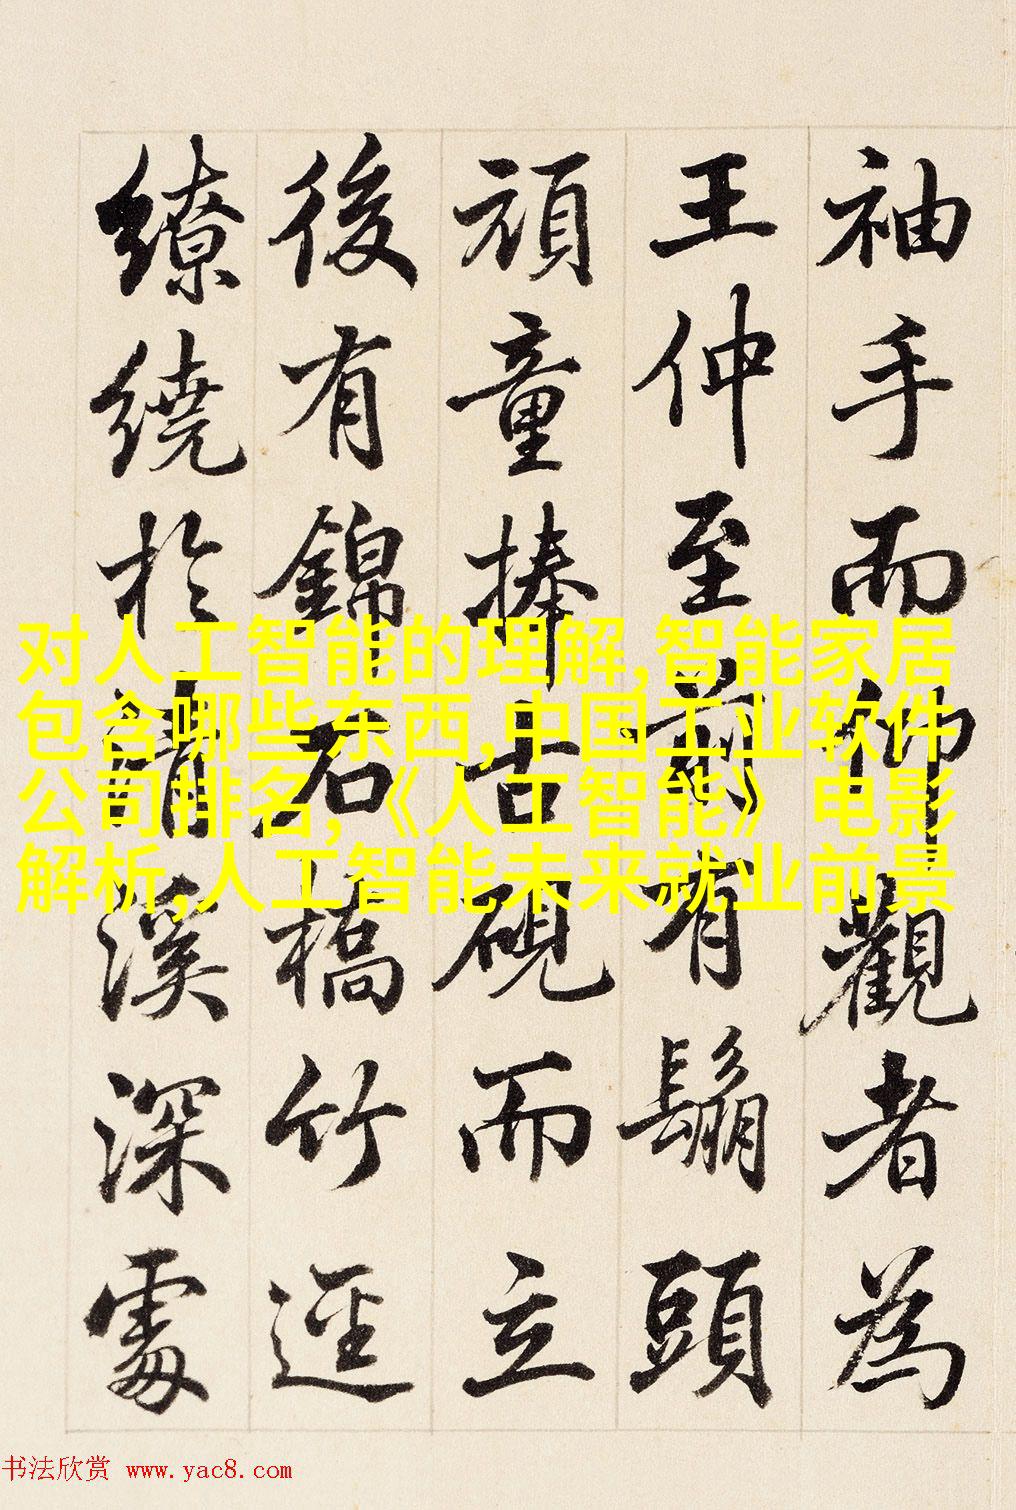 袖手而仰觀者為
王仲至前有鬅頭
頑童捧古硯而立
後有錦石橋竹逕
繚繞於清溪深處
对人工智能的理解,智能家居
包含哪些东西,中国工业软件
公司排名,《人工智能》电影
解析,人工智能未来就业前景
书法欣赏 www.yac8.com